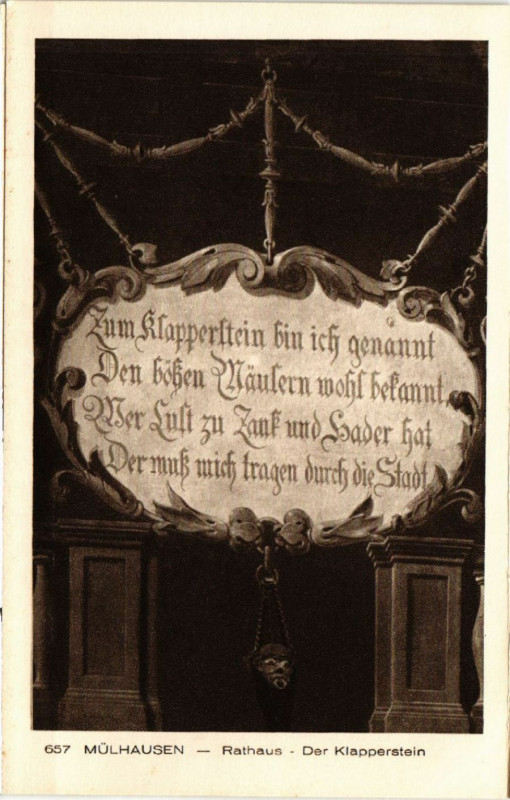 Zum Klapperstein bin ich genannt
Den bößen Mäulern wohl bekannt,
Wer Lust zu Zank und Hader hat
Der muß mich tragen durch die Stadt
657 MÜLHAUSEN — Rathaus - Der Klapperstein